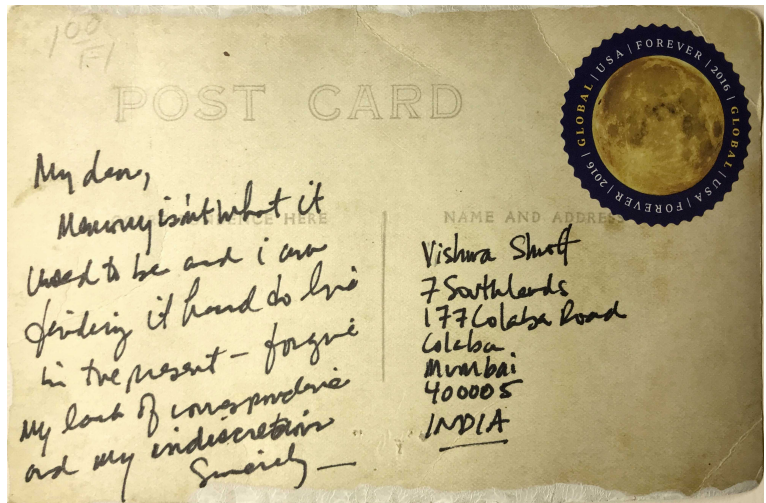 100
F1
POST CARD
GLOBAL | USA | FOREVER | 2016 | GLOBAL | USA | FOREVER | 2016 |
CORRESPONDENCE HERE
NAME AND ADDRESS
My dear,
Memory isn't what it
used to be and i am
finding it hard to live
in the present – forgive
my lack of correspondence
and my indiscretion
Sincerely —
Vishwa Shroff
7 Southlands
177 Colaba Road
Colaba
Mumbai
400005
INDIA